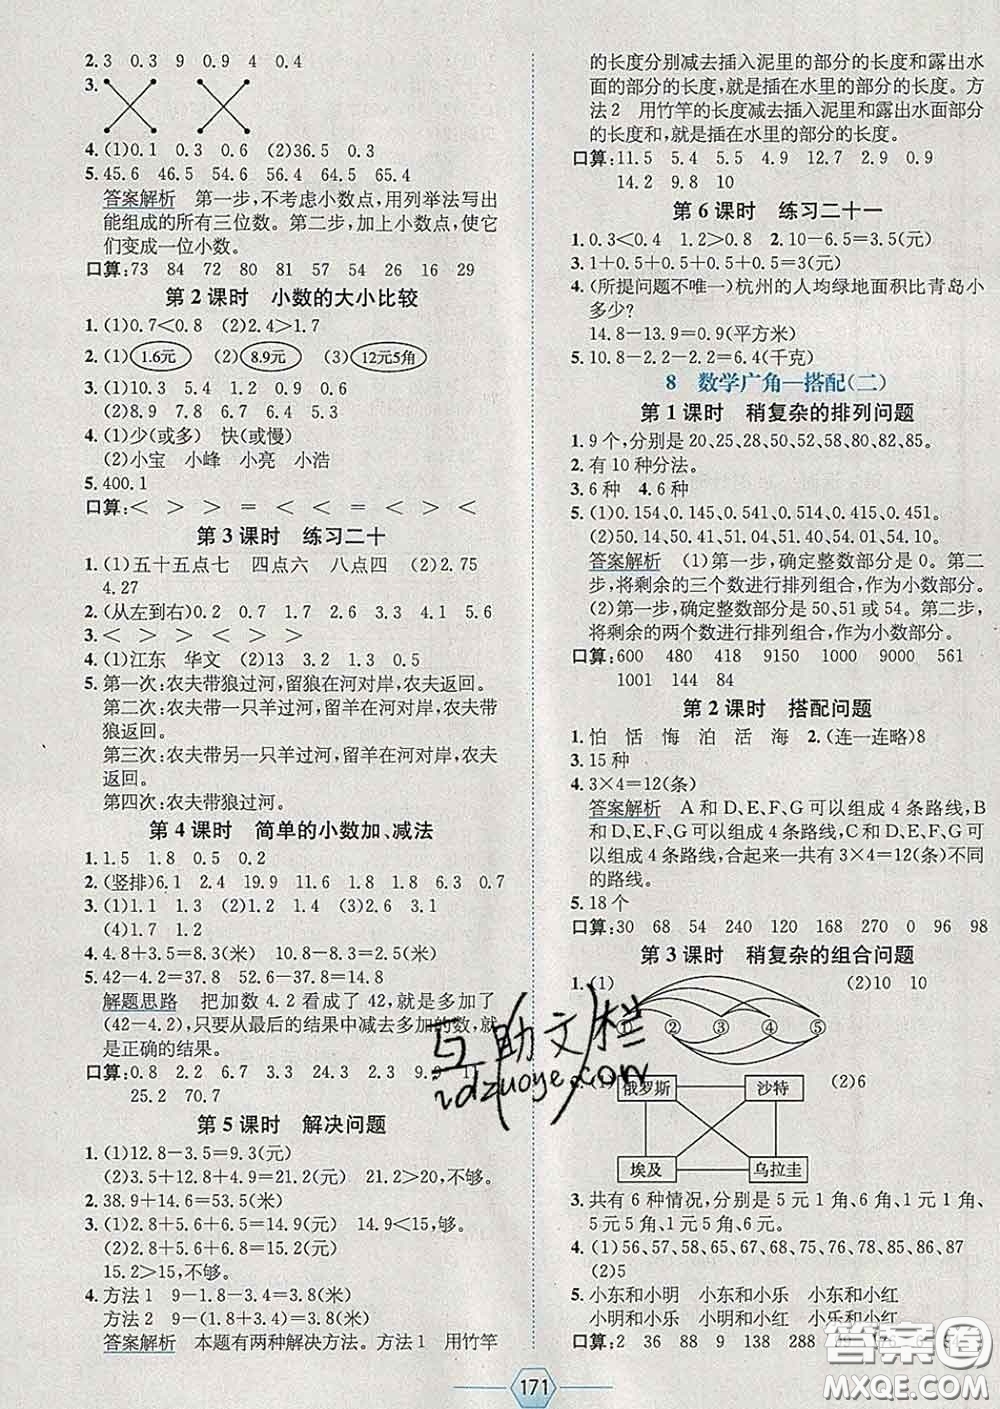 2. 3 0.3 9 0.9 4 0.4
3.
4. (1)0.1 0.3 0.6 (2)36.5 0.3
5. 45.6 46.5 54.6 56.4 64.5 65.4
答案解析 第一步,不考虑小数点,用列举法写出
能组成的所有三位数。第二步,加上小数点,使它
们变成一位小数。
口算:73 84 72 80 81 57 54 26 16 29
第 2 课时 小数的大小比较
1. (1)0.7<0.8 (2)2.4>1.7
2. (1)1.6元 (2)8.9元 (3)12元5角
3. (1)10.3 5.4 4.5 3.4
(2)8.9 7.8 6.7 5.6
4. (1)少(或多) 快(或慢)
(2)小宝 小峰 小亮 小浩
5. 400.1
口算:< > > = < < > < > <
第 3 课时 练习二十
1. (1)五十五点七 四点六 八点四 (2)2.75
4.27
2. (从左到右)0.2 0.7 1.8 2.4 4.1 5.6
3. < > < > > >
4. (1)江东 华文 (2)13 3.2 1.3 0.5
5. 第一次:农夫带狼过河,留狼在河对岸,农夫返回。
第二次:农夫带一只羊过河,留羊在河对岸,农夫带
狼返回。
第三次:农夫带另一只羊过河,留羊在河对岸,农夫
返回。
第四次:农夫带狼过河。
第 4 课时 简单的小数加、减法
1. 1.5 1.8 0.5 0.2
2. (竖排)6.1 2.4 19.9 11.6 1.6 6.8 6.3 0.7
3. (1)1.1 1.3 (2)2.2 1.9 (3)2.4 3.1
(4)1.7 1.2
4. 4.8+3.5=8.3(米) 10.8-8.3=2.5(米)
5. 42-4.2=37.8 52.6-37.8=14.8
解题思路 把加数 4.2 看成了 42,就是多加了
(42-4.2),只要从最后的结果中减去多加的数,就
是正确的结果。
口算:0.8 2.2 6.7 3.3 24.3 7.6 9.9
25.2 70.7
第 5 课时 解决问题
1. (1)12.8-3.5=9.3(元)
(2)3.5+12.8+4.9=21.2(元) 21.2>20,不够。
2. 38.9+14.6=53.5(米)
3. (1)2.8+5.6+6.5=14.9(元) 14.9<15,够。
(2)2.8+5.6+6.8=15.2(元)
15.2>15,不够。
4. 方法 1 9-1.8-3.4=3.8(米)
方法 2 9-(1.8+3.4)=3.8(米)
答案解析 本题有两种解决方法。方法 1 用竹竿
的长度分别减去插入泥里的部分的长度和露出水
面的部分的长度,就是插在水里的部分的长度。方
法 2 用竹竿的长度减去插入泥里和露出水面部分
的长度和,就是插在水里的部分的长度。
口算:11.5 5.4 5.5 4.9 12.7 2.9 0.9
14.2 9.8 10
第 6 课时 练习二十一
1. 0.3<0.4 1.2>0.8 2. 10-6.5=3.5(元)
3. 1+0.5+0.5+0.5+0.5=3(元)
4. (所提问题不唯一)杭州的人均绿地面积比青岛小
多少?
14.8-13.9=0.9(平方米)
5. 10.8-2.2-2.2=6.4(千克)
8 数学广角—搭配(二)
第 1 课时 稍复杂的排列问题
1. 9 个,分别是 20、25、28、50、52、58、80、82、85。
2. 有 10 种分法。
3. 6 种 4. 6 种
5. (1)0.154、0.145、0.541、0.514、0.415、0.451。
(2)50.14、50.41、51.04、51.40、54.01、54.10。
答案解析 (1)第一步,确定整数部分是 0。第二
步,将剩余的三个数进行排列组合,作为小数部分。
(2)第一步,确定整数部分是 50、51 或 54。第二步,
将剩余的两个数进行排列组合,作为小数部分。
口算:600 480 418 9150 1000 9000 561
1001 144 84
第 2 课时 搭配问题
1. 怕 恬 悔 泊 活 海 2. (连一连略)8
3. 15 种
4. 3×4=12(条)
答案解析 A 和 D、E、F、G 可以组成 4 条路线,B
和 D、E、F、G 可以组成 4 条路线,C 和 D、E、F、G 可
以组成 4 条路线,合起来一共有 3×4=12(条)不同
的路线。
5. 18 个
口算:30 68 54 240 120 168 270 0 96 98
第 3 课时 稍复杂的组合问题
1. (1) (2)10 10
① ② ③ ④ ⑤
俄罗斯 沙特 (2)6
埃及 乌拉圭
3. 共有 6 种情况,分别是 5 元 1 角、6 角、1 元 1 角、
5 元 5 角、1 元 5 角、6 元。
4. (1)56、57、58、65、67、68、75、76、78、85、86、87
(2)5
5. 小东和小明 小东和小乐 小东和小红
小明和小乐 小明和小红 小乐和小红
口算:2 36 88 9 138 288
171
互助文栏
答案圈
MXQE.COM